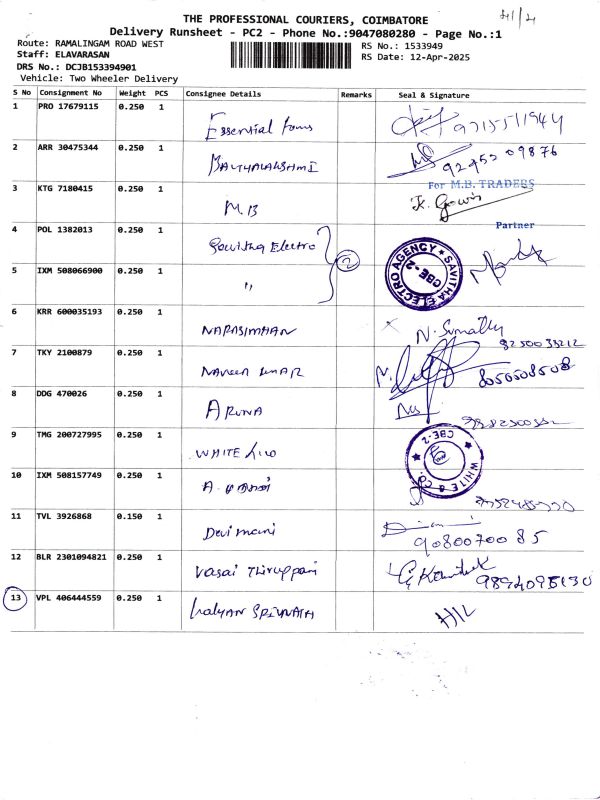 41/4
THE PROFESSIONAL COURIERS, COIMBATORE
Delivery Runsheet - PC2 - Phone No.:9047080280 - Page No.:1
Route: RAMALINGAM ROAD WEST
Staff: ELAVARASAN
DRS No.: DCJB153394901
Vehicle: Two Wheeler Delivery
RS No.: 1533949
RS Date: 12-Apr-2025
S No Consignment No Weight PCS Consignee Details Remarks Seal & Signature
1 PRO 17679115 0.250 1 Essential 9715511944
2 ARR 30475344 0.250 1 92452 09876
3 KTG 7180415 0.250 1 M B For M.B. TRADERS K. Gowri
Partner
4 POL 1382013 0.250 1 Savitha Electro 2 SAVITHA ELECTRO AGENCY CBE-2
5 IXM 508066900 0.250 1 "
6 KRR 600035193 0.250 1 NARASIMHAN N. Sumathy
7 TKY 2100879 0.250 1 NAVEEN KUMAR 8056508508
8 DDG 470026 0.250 1 ARUNA
9 TMG 200727995 0.250 1 WHITE & CO WHITE & CO. CBE-2
10 IXM 508157749 0.250 1 A.
11 TVL 3926868 0.150 1 Devi mani 90800700 85
12 BLR 2301094821 0.250 1 Vasai Thiruppani
13 VPL 406444559 0.250 1 Kalyan SRIVNATH H/L